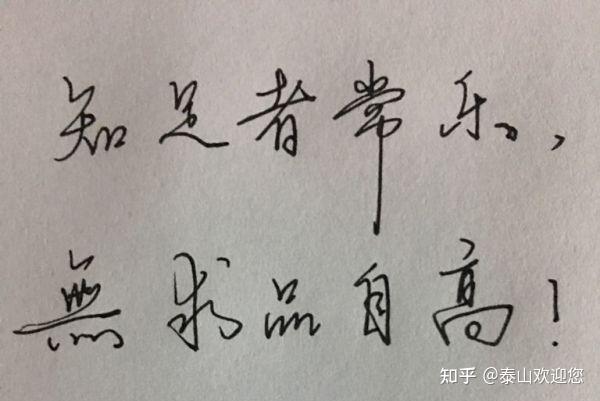 知足者常乐,
無求品自高!
知乎 @泰山欢迎您